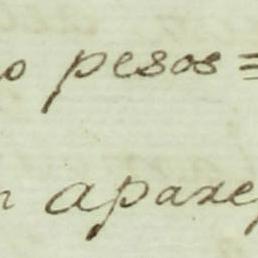 o pesos =
n apare